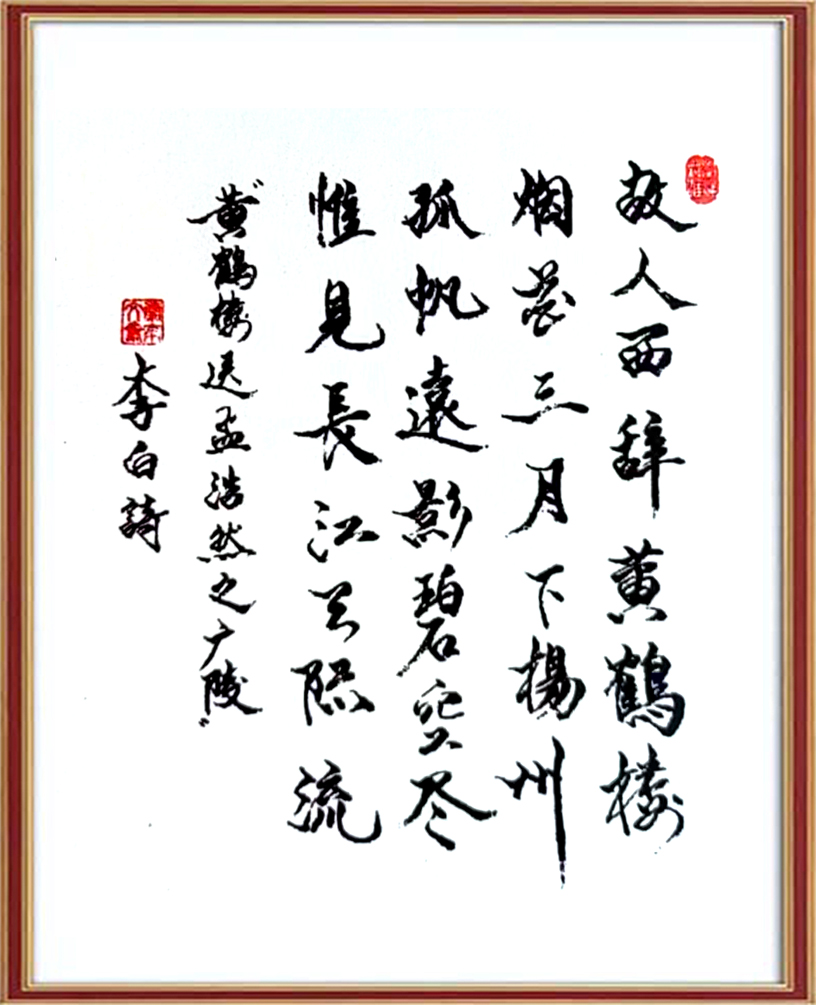 故人西辞黄鹤楼
烟花三月下楊州
孤帆遠影碧空尽
惟見長江天际流
"黄鶴楼送孟浩然之广陵"
李白詩